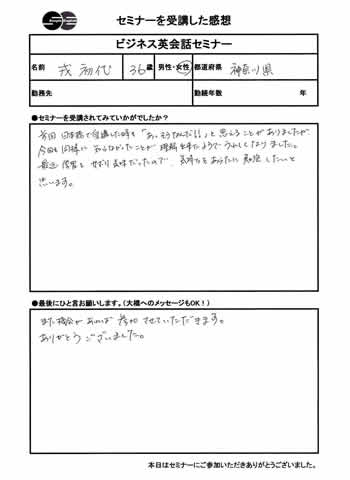 セミナーを受講した感想
ビジネス英会話セミナー
名前 戎 初代 36歳 男性・女性 都道府県 神奈川県
勤務先 勤続年数 年
●セミナーを受講されてみていかがでしたか？
前回 日本橋で受講した時も「あっそうなんだ!!」と思うことがありましたが
今回も同様に 知らなかったことが 理解出来たようで うれしくなりました。
最近 復習も サボり気味だったので、気持ちをあらたに 勉強 したいと
思います。
●最後にひと言お願いします。（大橋へのメッセージもOK！）
また機会が あれば 参加 させていただきます。
ありがとう ございました。
本日はセミナーにご参加いただきありがとうございました。